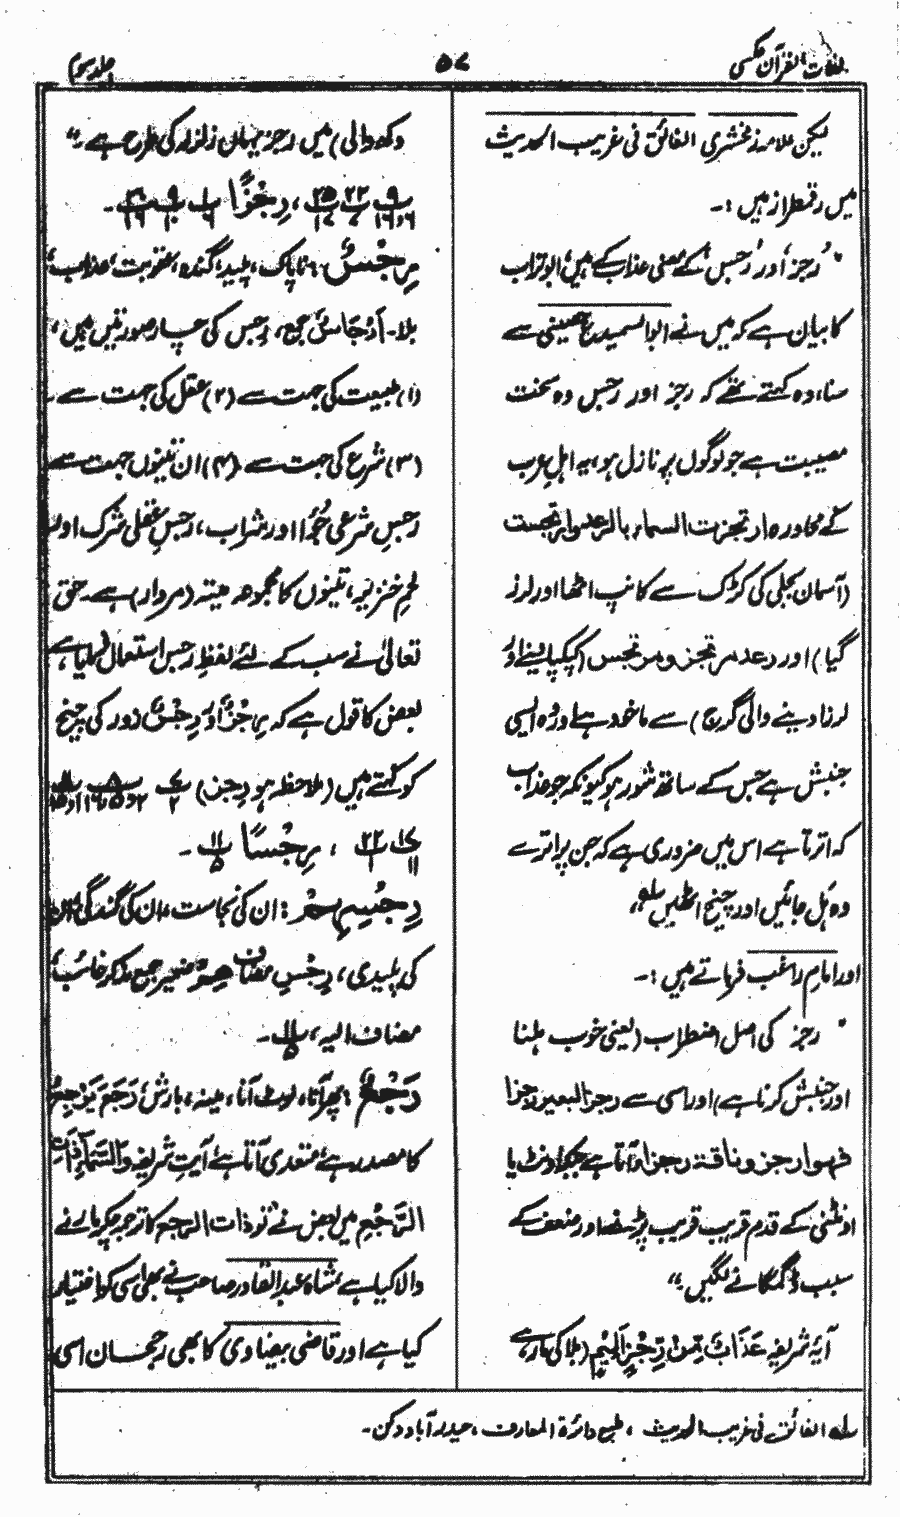 لغات القرآن عکسی
۵۷
جلد سوم
لیکن علامہ زمخشری الفائق فی غریب الحدیث
میں رقمطراز ہیں :-
" رُجز، اور رُجس کے معنی عذاب کے ہیں، ابو تراب
کا بیان ہے کہ میں نے ابو السمیدع حصینی سے
سنا، وہ کہتے تھے کہ رجز اور رجس وہ سخت
مصیبت ہے جو لوگوں پر نازل ہو، یہ اہل عرب
کے محاورہ ارتجزت السماء بالرعد وارتجست
(آسمان بجلی کی کڑک سے کانپ اٹھا اور لرز
گیا) اور رعد مرتجز و مرتجس (کپکپا دینے اور
لرزا دینے والی گرج) سے ماخوذ ہے اور وہ ایسی
جنبش ہے جس کے ساتھ شور ہو کیونکہ جو عذاب
کہ اترتا ہے اس میں ضروری ہے کہ جن پر اترے
وہ ہل جائیں اور چیخ اٹھیں"
اور امام راغب فرماتے ہیں :-
" رجز کی اصل اضطراب (یعنی خوب ہلنا
اور جنبش کرنا ہے) اور اسی سے رجز البعیر رجزا
فہو ارجز و ناقۃ رجزاء آتا ہے جبکہ اونٹ یا
اونٹنی کے قدم قریب قریب پڑنے اور ضعف کے
سبب ڈگمگانے لگیں"
آیۂ شریفہ عَذَابٌ مِّنْ رِّجْزٍ اَلِیْمٌ (بلا کی مار ہے،
دکھ والی) میں رجز یہاں زلزلہ کی طرح ہے "
رِجْزًا
رِجْسٌ، ناپاک، پلید، گندہ، عقوبت، عذاب،
بلا۔ اَرْجَاسٌ جمع، رجس کی چار صورتیں ہیں،
(۱) طبیعت کی جہت سے (۲) عقل کی جہت سے
(۳) شرع کی جہت سے (۴) ان تینوں جہت سے
رجسِ شرعی جُوا اور شراب، رجسِ عقلی شرک اور
لحمِ خنزیر، تینوں کا مجموعہ میتہ (مردار) ہے۔ حق
تعالیٰ نے سب کے لئے لفظ رجس استعمال کیا ہے
بعض کا قول ہے کہ رِجْزٌ اور رِجْسٌ زور کی چیخ
کو کہتے ہیں (ملاحظہ ہو رجز)
، رِجْسًا
رِجْسِهِمْ : ان کی نجاست، ان کی گندگی، ان
کی پلیدی، رِجْسِ مضاف هِمْ ضمیر جمع مذکر غائب،
مضاف الیہ،
رَجْعٌ : پھر آنا، لوٹ آنا، مینہ، بارش، رَجَعَ یَرْجِعُ
کا مصدر ہے، متعدی آتا ہے، آیتِ شریفہ وَالسَّمَآءِ ذَاتِ
الرَّجْعِ میں بعض نے تو ذات الرجع کا ترجمہ چکر مارنے
والا کیا ہے، شاہ عبد القادر صاحب نے بھی اسی کو اختیار
کیا ہے اور قاضی بیضاوی کا بھی رجحان اسی
؎ الفائق فی غریب الحدیث ، طبع دائرۃ المعارف، حیدر آباد دکن۔